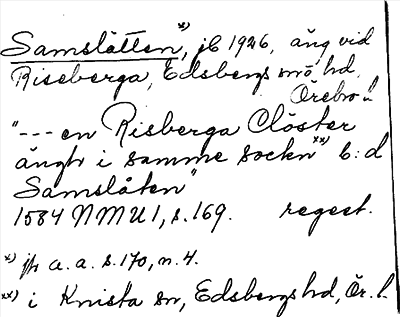 Samslåtten*), jb 1926, äng vid
Riseberga, Edsbergs sn o hd,
Örebro l
"--- en Risberga Clöster
ängh i samme sockn**) b:d
Samslåten"
1584 NMU 1, s. 169. regest.
*) jfr a. a. s. 170, n. 4.
**) i Knista sn, Edsbergs hd, Ör. l.